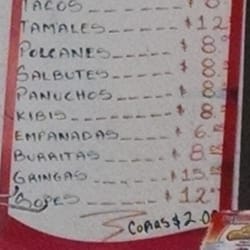 TACOS------ $ 8.
TAMALES---- $ 12
POLCANES--- $ 8.
SALBUTES--- $ 8.
PANUCHOS--- $ 8.
KIBIS------ $ 8.
EMPANADAS-- $ 6.
BURRITAS--- $ 8.
GRINGAS---- $ 15.
SOPES------ $ 12.
COPAS $ 2.00